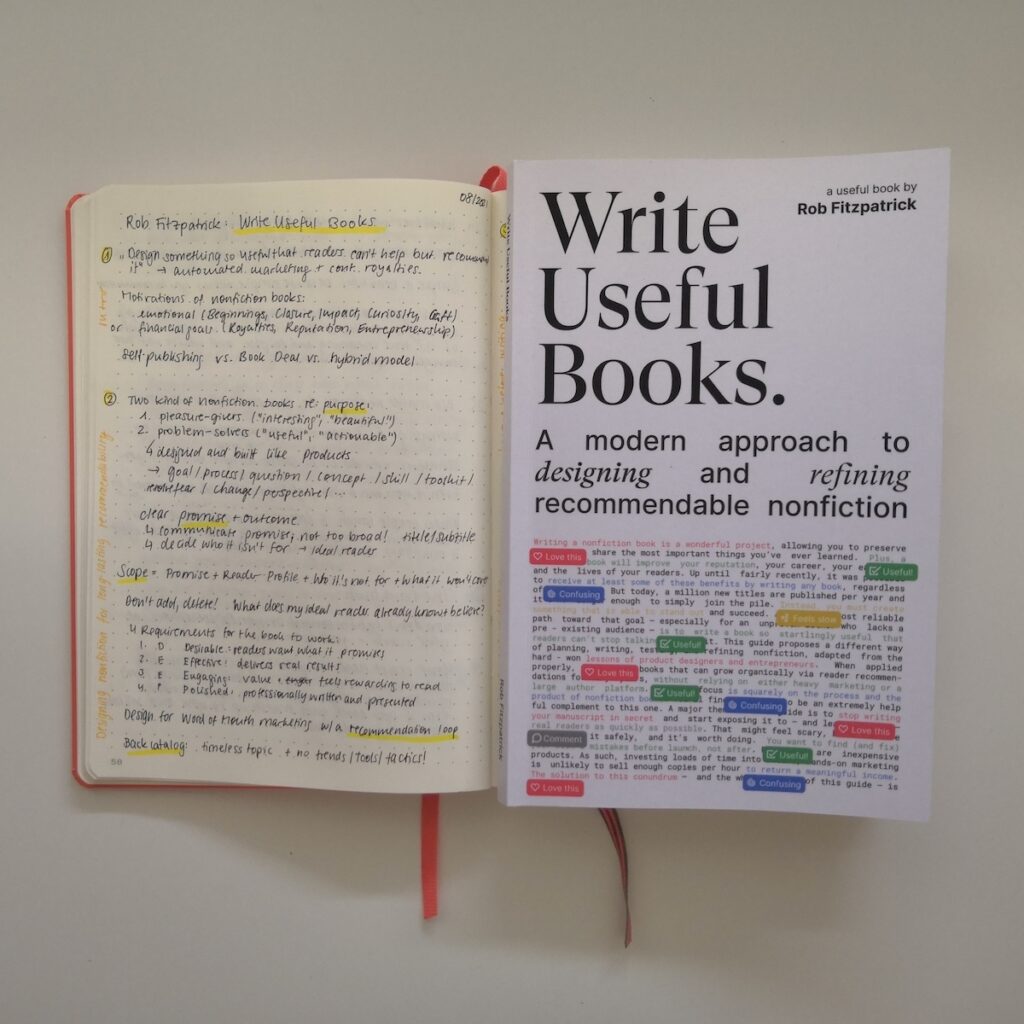 08/202
Rob Fitzpatrick: Write Useful Books
① "Design something so useful that readers can't help but recommend
it" → automated marketing + cont. royalties.
Intro
Motivations of nonfiction books:
emotional (Beginnings, Closure, Impact, Curiosity, Craft)
or financial goals (Royalties, Reputation, Entrepreneurship)
Self-publishing vs. Book Deal vs. hybrid model
② Two kind of nonfiction books re: purpose:
1. pleasure-givers ("interesting", "beautiful")
2. problem-solvers ("useful", "actionable")
↳ designed and built like products
→ goal / process / question / concept / skill / toolkit /
fear / change / perspective / ...
clear promise + outcome
↳ communicate promise, not too broad! title/subtitle
↳ decide who it isn't for → ideal reader
Scope = Promise + Reader Profile + Who it's not for + what it won't cover
Don't add, delete! What does my ideal reader already know + believe?
4 Requirements for the book to work:
1. D Desirable: readers want what it promises
2. E Effective: delivers real results
3. E Engaging: value + feels rewarding to read
4. P Polished: professionally written and presented
Design for Word of Mouth marketing w/ a recommendation loop
Back catalog: timeless topic + no trends / tools / tactics!
Designing nonfiction for long-lasting recommendability
56
Write Useful Books
Rob Fitzpatrick
a useful book by
Rob Fitzpatrick
Write
Useful
Books.
A modern approach to
designing and refining
recommendable nonfiction
Writing a nonfiction book is a wonderful project, allowing you to preserve
Love this share the most important things you've ever learned. Plus, a
book will improve your reputation, your career, your Useful!
and the lives of your readers. Up until fairly recently, it was
to receive at least some of these benefits by writing any book, regardless
it Confusing But today, a million new titles are published per year and
enough to simply join the pile. Instead, you must create
something that is able to stand out and succeed. Feels slow most reliable
path toward that goal – especially for an who lacks a
pre - existing audience – is to write a book so startlingly useful that
readers can't stop talking Useful! it. This guide proposes a different way
of planning, writing, refining nonfiction, adapted from the
hard - won lessons of product designers and entrepreneurs. When applied
properly, Love this books that can grow organically via reader recommen-
dations for without relying on either heavy marketing or a
large author platform. Useful! focus is squarely on the process and the
product of nonfiction Confusing to be an extremely help
ful complement to this one. A major guide is to stop writing
your manuscript in secret and start exposing it to – and Love this
real readers as quickly as possible. That might feel scary,
Comment it safely, and it's worth doing. You want to find (and fix)
mistakes before launch, not after. Useful! are inexpensive
products. As such, investing loads of time into hands-on marketing
is unlikely to sell enough copies per hour to return a meaningful income.
The solution to this conundrum – and the Confusing of this guide – is
Love this